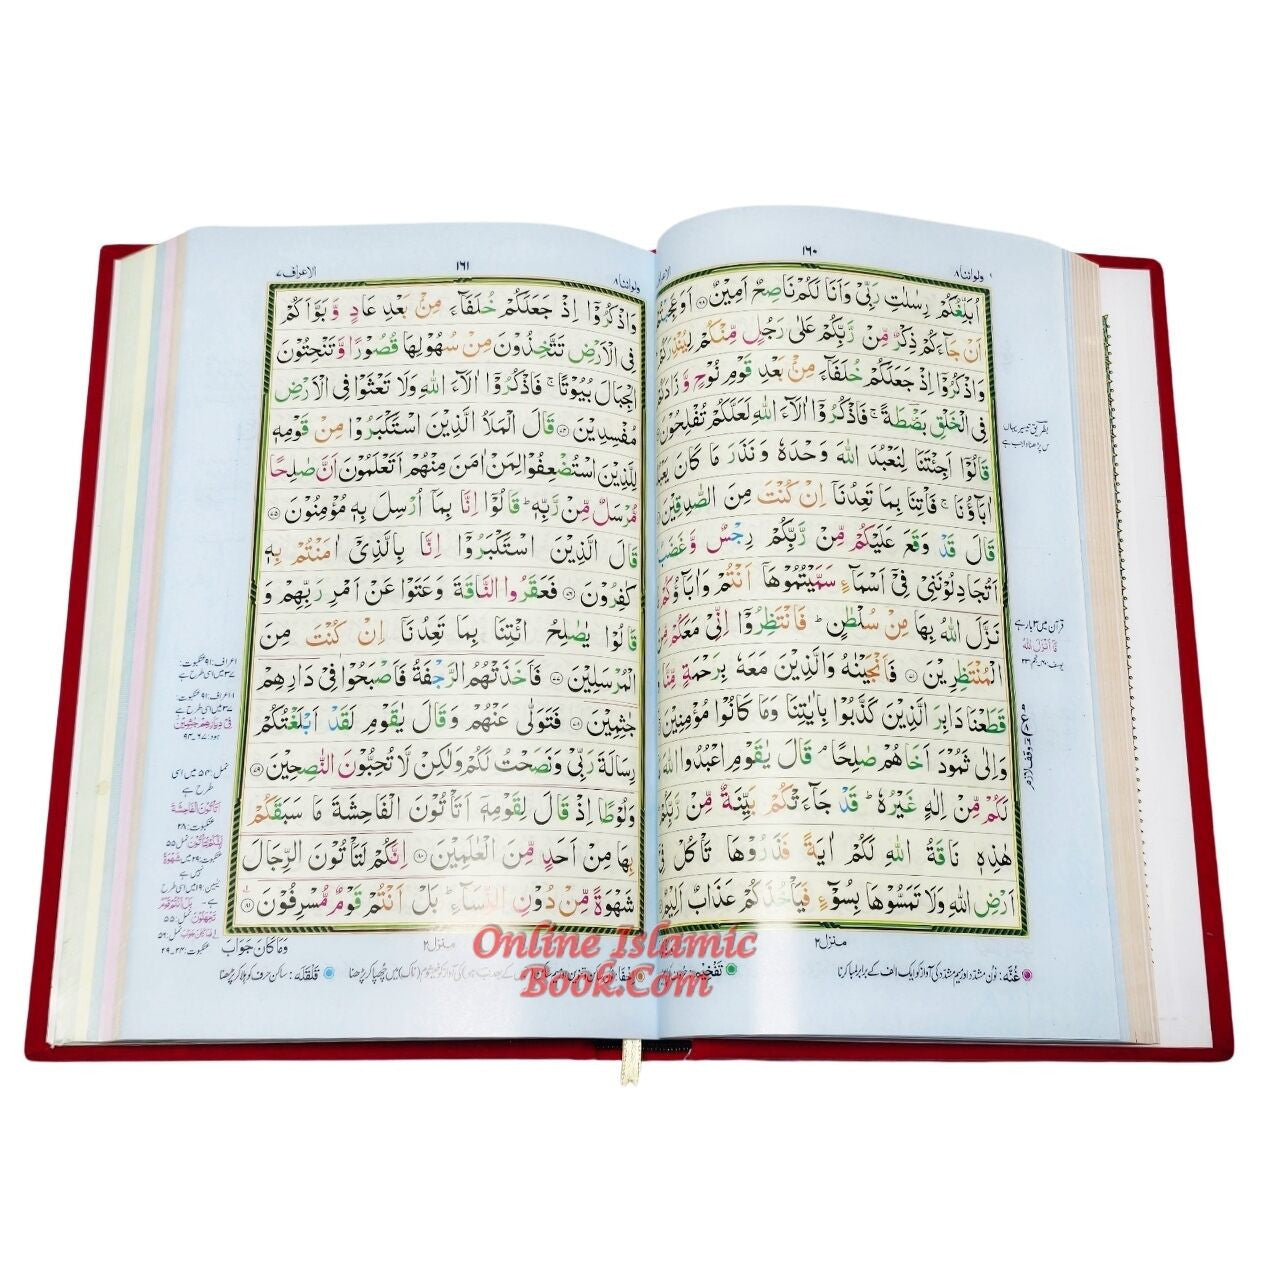 ١٦٠
ولواننا ٨
اُبَلِّغُكُمْ رِسٰلٰتِ رَبِّيْ وَاَنَا لَكُمْ نَاصِحٌ اَمِيْنٌ ۝۶۸ اَوَعَجِبْتُمْ
اَنْ جَآءَكُمْ ذِكْرٌ مِّنْ رَّبِّكُمْ عَلٰى رَجُلٍ مِّنْكُمْ لِيُنْذِرَكُمْ
وَاذْكُرُوْٓا اِذْ جَعَلَكُمْ خُلَفَآءَ مِنْۢ بَعْدِ قَوْمِ نُوْحٍ وَّزَادَكُمْ
فِى الْخَلْقِ بَصْۜطَةً ۚ فَاذْكُرُوْٓا اٰلَآءَ اللّٰهِ لَعَلَّكُمْ تُفْلِحُوْنَ
قَالُوْٓا اَجِئْتَنَا لِنَعْبُدَ اللّٰهَ وَحْدَهٗ وَنَذَرَ مَا كَانَ يَعْبُدُ
اٰبَآؤُنَا ۚ فَاْتِنَا بِمَا تَعِدُنَآ اِنْ كُنْتَ مِنَ الصّٰدِقِيْنَ
قَالَ قَدْ وَقَعَ عَلَيْكُمْ مِّنْ رَّبِّكُمْ رِجْسٌ وَّغَضَبٌ
اَتُجَادِلُوْنَنِيْ فِيْٓ اَسْمَآءٍ سَمَّيْتُمُوْهَآ اَنْتُمْ وَاٰبَآؤُكُمْ
نَزَّلَ اللّٰهُ بِهَا مِنْ سُلْطٰنٍ ۭ فَانْتَظِرُوْٓا اِنِّيْ مَعَكُمْ مِّنَ
الْمُنْتَظِرِيْنَ ۝۷۱ فَاَنْجَيْنٰهُ وَالَّذِيْنَ مَعَهٗ بِرَحْمَةٍ مِّنَّا
قَطَعْنَا دَابِرَ الَّذِيْنَ كَذَّبُوْا بِاٰيٰتِنَا وَمَا كَانُوْا مُؤْمِنِيْنَ
وَاِلٰى ثَمُوْدَ اَخَاهُمْ صٰلِحًا ۘ قَالَ يٰقَوْمِ اعْبُدُوا اللّٰهَ
لَكُمْ مِّنْ اِلٰهٍ غَيْرُهٗ ۭ قَدْ جَآءَتْكُمْ بَيِّنَةٌ مِّنْ رَّبِّكُمْ
هٰذِهٖ نَاقَةُ اللّٰهِ لَكُمْ اٰيَةً فَذَرُوْهَا تَاْكُلْ فِيْٓ
اَرْضِ اللّٰهِ وَلَا تَمَسُّوْهَا بِسُوْٓءٍ فَيَاْخُذَكُمْ عَذَابٌ اَلِيْمٌ
منزل ٢
قرآن میں ۳ بار ہے
غُنَّه: نون مشدد اور میم مشدد کی آواز کو ایک الف کے برابر لمبا کرنا
تَفْخِيْم:
١٦١
ولواننا ٨
الاعراف ٧
وَاذْكُرُوْٓا اِذْ جَعَلَكُمْ خُلَفَآءَ مِنْۢ بَعْدِ عَادٍ وَّبَوَّاَكُمْ
فِى الْاَرْضِ تَتَّخِذُوْنَ مِنْ سُهُوْلِهَا قُصُوْرًا وَّتَنْحِتُوْنَ
الْجِبَالَ بُيُوْتًا ۚ فَاذْكُرُوْٓا اٰلَآءَ اللّٰهِ وَلَا تَعْثَوْا فِى الْاَرْضِ
مُفْسِدِيْنَ ۝۷۴ قَالَ الْمَلَاُ الَّذِيْنَ اسْتَكْبَرُوْا مِنْ قَوْمِهٖ
لِلَّذِيْنَ اسْتُضْعِفُوْا لِمَنْ اٰمَنَ مِنْهُمْ اَتَعْلَمُوْنَ اَنَّ صٰلِحًا
مُّرْسَلٌ مِّنْ رَّبِّهٖ ۭ قَالُوْٓا اِنَّا بِمَآ اُرْسِلَ بِهٖ مُؤْمِنُوْنَ ۝۷۵
قَالَ الَّذِيْنَ اسْتَكْبَرُوْٓا اِنَّا بِالَّذِيْٓ اٰمَنْتُمْ بِهٖ
كٰفِرُوْنَ ۝۷۶ فَعَقَرُوا النَّاقَةَ وَعَتَوْا عَنْ اَمْرِ رَبِّهِمْ وَ
قَالُوْا يٰصٰلِحُ ائْتِنَا بِمَا تَعِدُنَآ اِنْ كُنْتَ مِنَ
الْمُرْسَلِيْنَ ۝۷۷ فَاَخَذَتْهُمُ الرَّجْفَةُ فَاَصْبَحُوْا فِيْ دَارِهِمْ
جٰثِمِيْنَ ۝۷۸ فَتَوَلّٰى عَنْهُمْ وَقَالَ يٰقَوْمِ لَقَدْ اَبْلَغْتُكُمْ
رِسَالَةَ رَبِّيْ وَنَصَحْتُ لَكُمْ وَلٰكِنْ لَّا تُحِبُّوْنَ النّٰصِحِيْنَ ۝۷۹
وَلُوْطًا اِذْ قَالَ لِقَوْمِهٖٓ اَتَاْتُوْنَ الْفَاحِشَةَ مَا سَبَقَكُمْ
بِهَا مِنْ اَحَدٍ مِّنَ الْعٰلَمِيْنَ ۝۸۰ اِنَّكُمْ لَتَاْتُوْنَ الرِّجَالَ
شَهْوَةً مِّنْ دُوْنِ النِّسَآءِ ۭ بَلْ اَنْتُمْ قَوْمٌ مُّسْرِفُوْنَ ۝۸۱
منزل ٢
وَمَا كَانَ جَوَابَ
قَلْقَلَه: ساکن حرف کو ہلا کر پڑھنا
Online Islamic
Book.Com